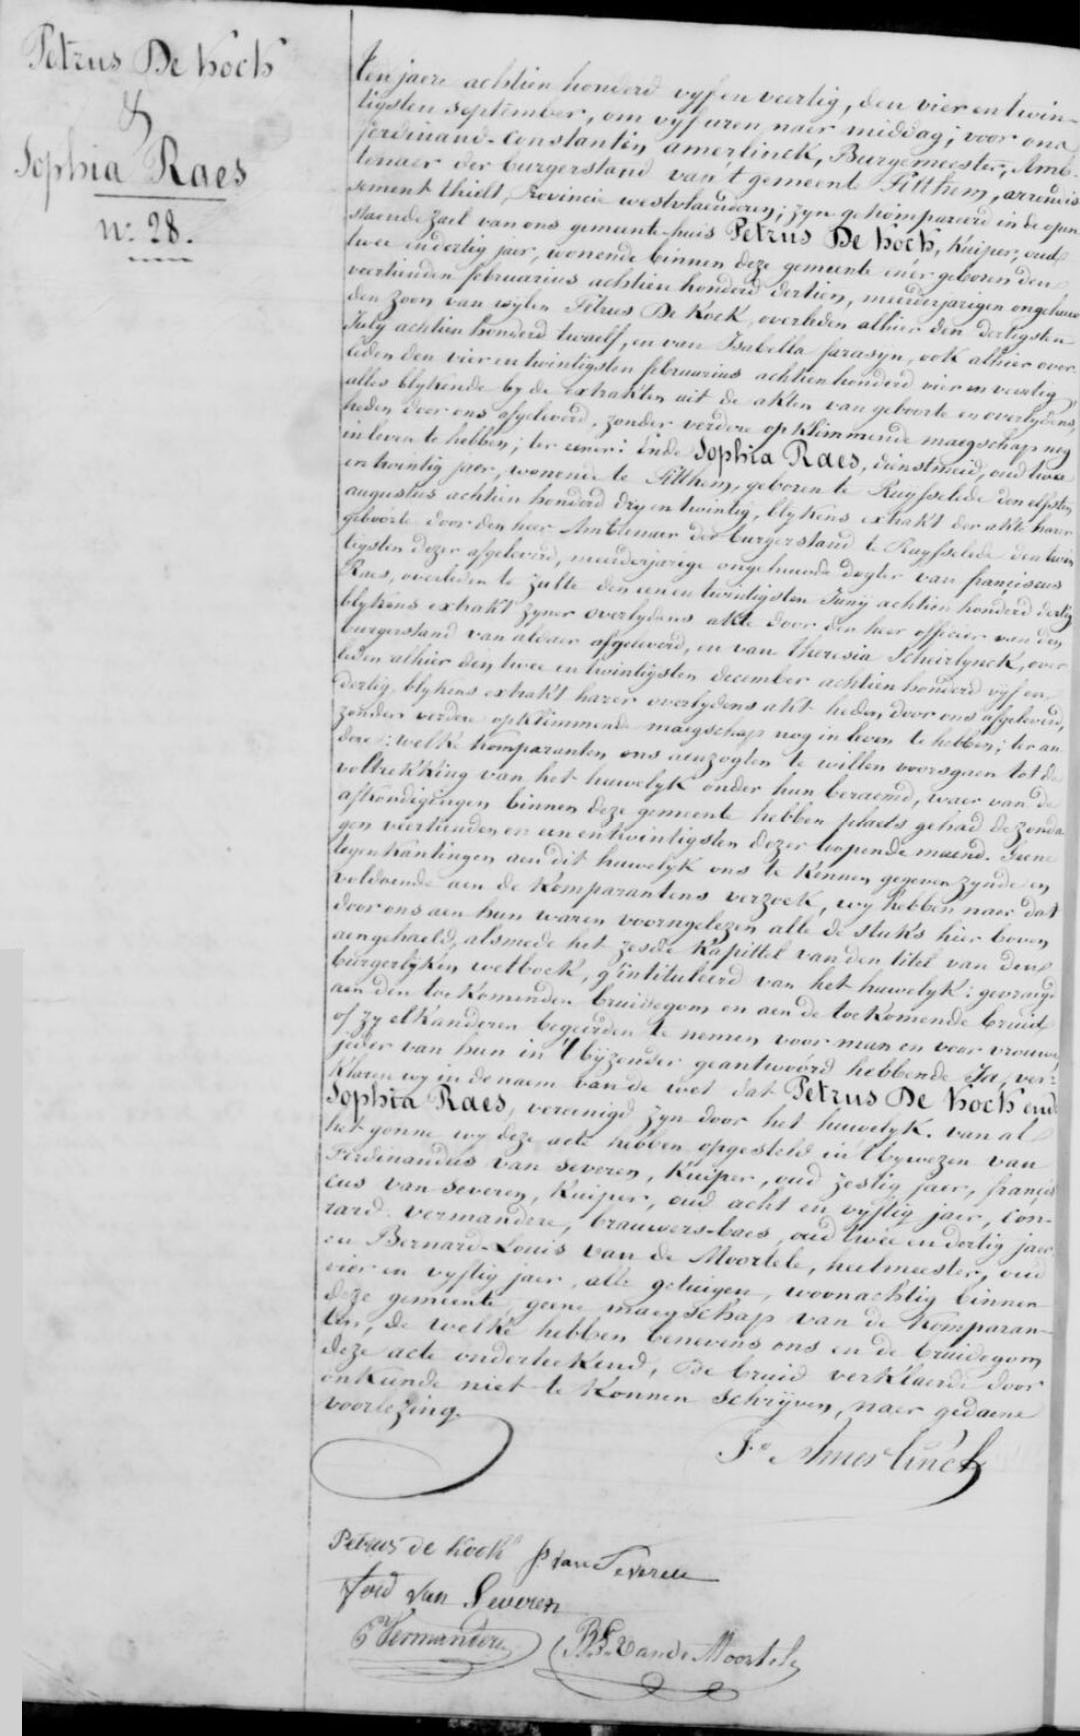 Petrus De Kock
&
Sophia Raes
N: 28.
Ten jaere achtien honderd vyf en veertig, den vier en twin-
tigsten september, om vyf uren naer middag; voor ons
ferdinand-Constantin amerlinck, Burgemeester, Amb-
tenaer der burgerstand van 't gemeente Pitthem, arrondis
sement thielt, Provincie westvlaenderen; zyn gekompareerd in de open
staende zael van ons gemeente-huis Petrus De Kock, Kuiper, oud
twee en dertig jaer, wonende binnen deze gemeente en er geboren den
veerthienden februarius achtien honderd dertien, meerderjarigen ongehuw
den zoon van wylen Petrus De Kock, overleden alhier den dertigsten
July achtien honderd twaelf, en van Isabella parasyn, ook alhier over
leden den vier en twintigsten februarius achtien honderd vier en veertig,
alles blykende by de extrakten uit de akten van geboorte en overlydens,
heden door ons afgeleverd, zonder verdere opklimmende maegschap nog
in leven te hebben; ter eener: Ende Sophia Raes, dienstmeid, oud twee
en twintig jaer, wonende te Pitthem, geboren te Ruysselede den elfsten
augustus achtien honderd dry en twintig, blykens extrakt der akte harer
geboorte door den heer Ambtenaer des burgerstand te Ruysselede den twin
tigsten dezer afgeleverd, meerderjarige ongehuwde dogter van franciscus
Raes, overleden te Zulte den een en twintigsten Juny achtien honderd dertig
blykens extrakt zyner overlydens akte door den heer officier van den
burgerstand van aldaer afgeleverd, en van theresia Scheirlynck, over
leden alhier den twee en twintigsten december achtien honderd vyf en
dertig, blykens extrakt harer overlydens akt heden door ons afgeleverd,
zonder verdere opklimmende maegschap nog in leven te hebben; ter an
dere: welke komparanten ons aenzogten te willen voorsgaen tot de
voltrekking van het huwelyk onder hun beraemd, waer van de
afkondigingen binnen deze gemeente hebben plaets gehad de zonda
gen veerthienden en een en twintigsten dezer loopende maend. Geene
tegenkantingen aen dit huwelyk ons te kennen gegeven zynde en
voldoende aen de komparantens verzoek, wy hebben naer dat
door ons aen hun waren voorngelezen alle de stuks hier boven
aengehaeld, alsmede het zesde kapittel van den titel van den
burgerlyken wetboek, g'intituleerd van het huwelyk: gevraegd
aen den toekomenden bruidegom en aen de toekomende bruid
of zy elkanderen begeerden te nemen voor man en voor vrouwe
jeder van hun in 't byzonder geantwoord hebbende Ja, ver-
klaren wy in de naem van de wet dat Petrus De Kock ende
Sophia Raes, vereenigd zyn door het huwelyk. van al
het gonne wy deze acte hebben opgesteld in 't bywezen van
Ferdinandus van severen, Kuiper, oud zestig jaer, francis
cus van severen, Kuiper, oud acht en vyftig jaer, Con-
rard vermandere, brauwers-baes, oud twee en dertig jaer
en Bernard-Louis van de Moortele, heelmeester, oud
vier en vyftig jaer, alle getuigen, woonachtig binnen
deze gemeente, geene maegschap van de komparan-
ten, de welke hebben benevens ons en de bruidegom
deze acte onderteekend, De bruid verklaerde door
onkunde niet te konnen schryven, naer gedaene
voorlezing.
F. Amerlinck
Petrus de Kock f. van Severen
Ferd van Severen
C Vermandere B.L. Vande Moortele